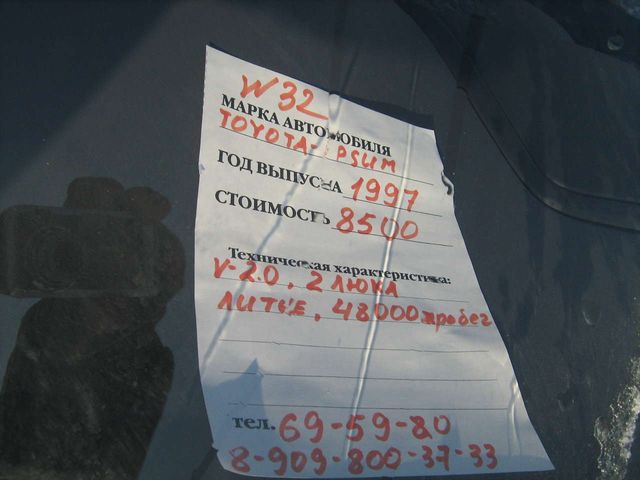 W 32
МАРКА АВТОМОБИЛЯ
TOYOTA-IPSUM
ГОД ВЫПУСКА 1997
СТОИМОСТЬ 8500
Техническая характеристика:
V-2.0, 2 ЛЮКА
ЛИТЬЕ, 48000 пробег
тел. 69-59-80
8-909-800-37-33